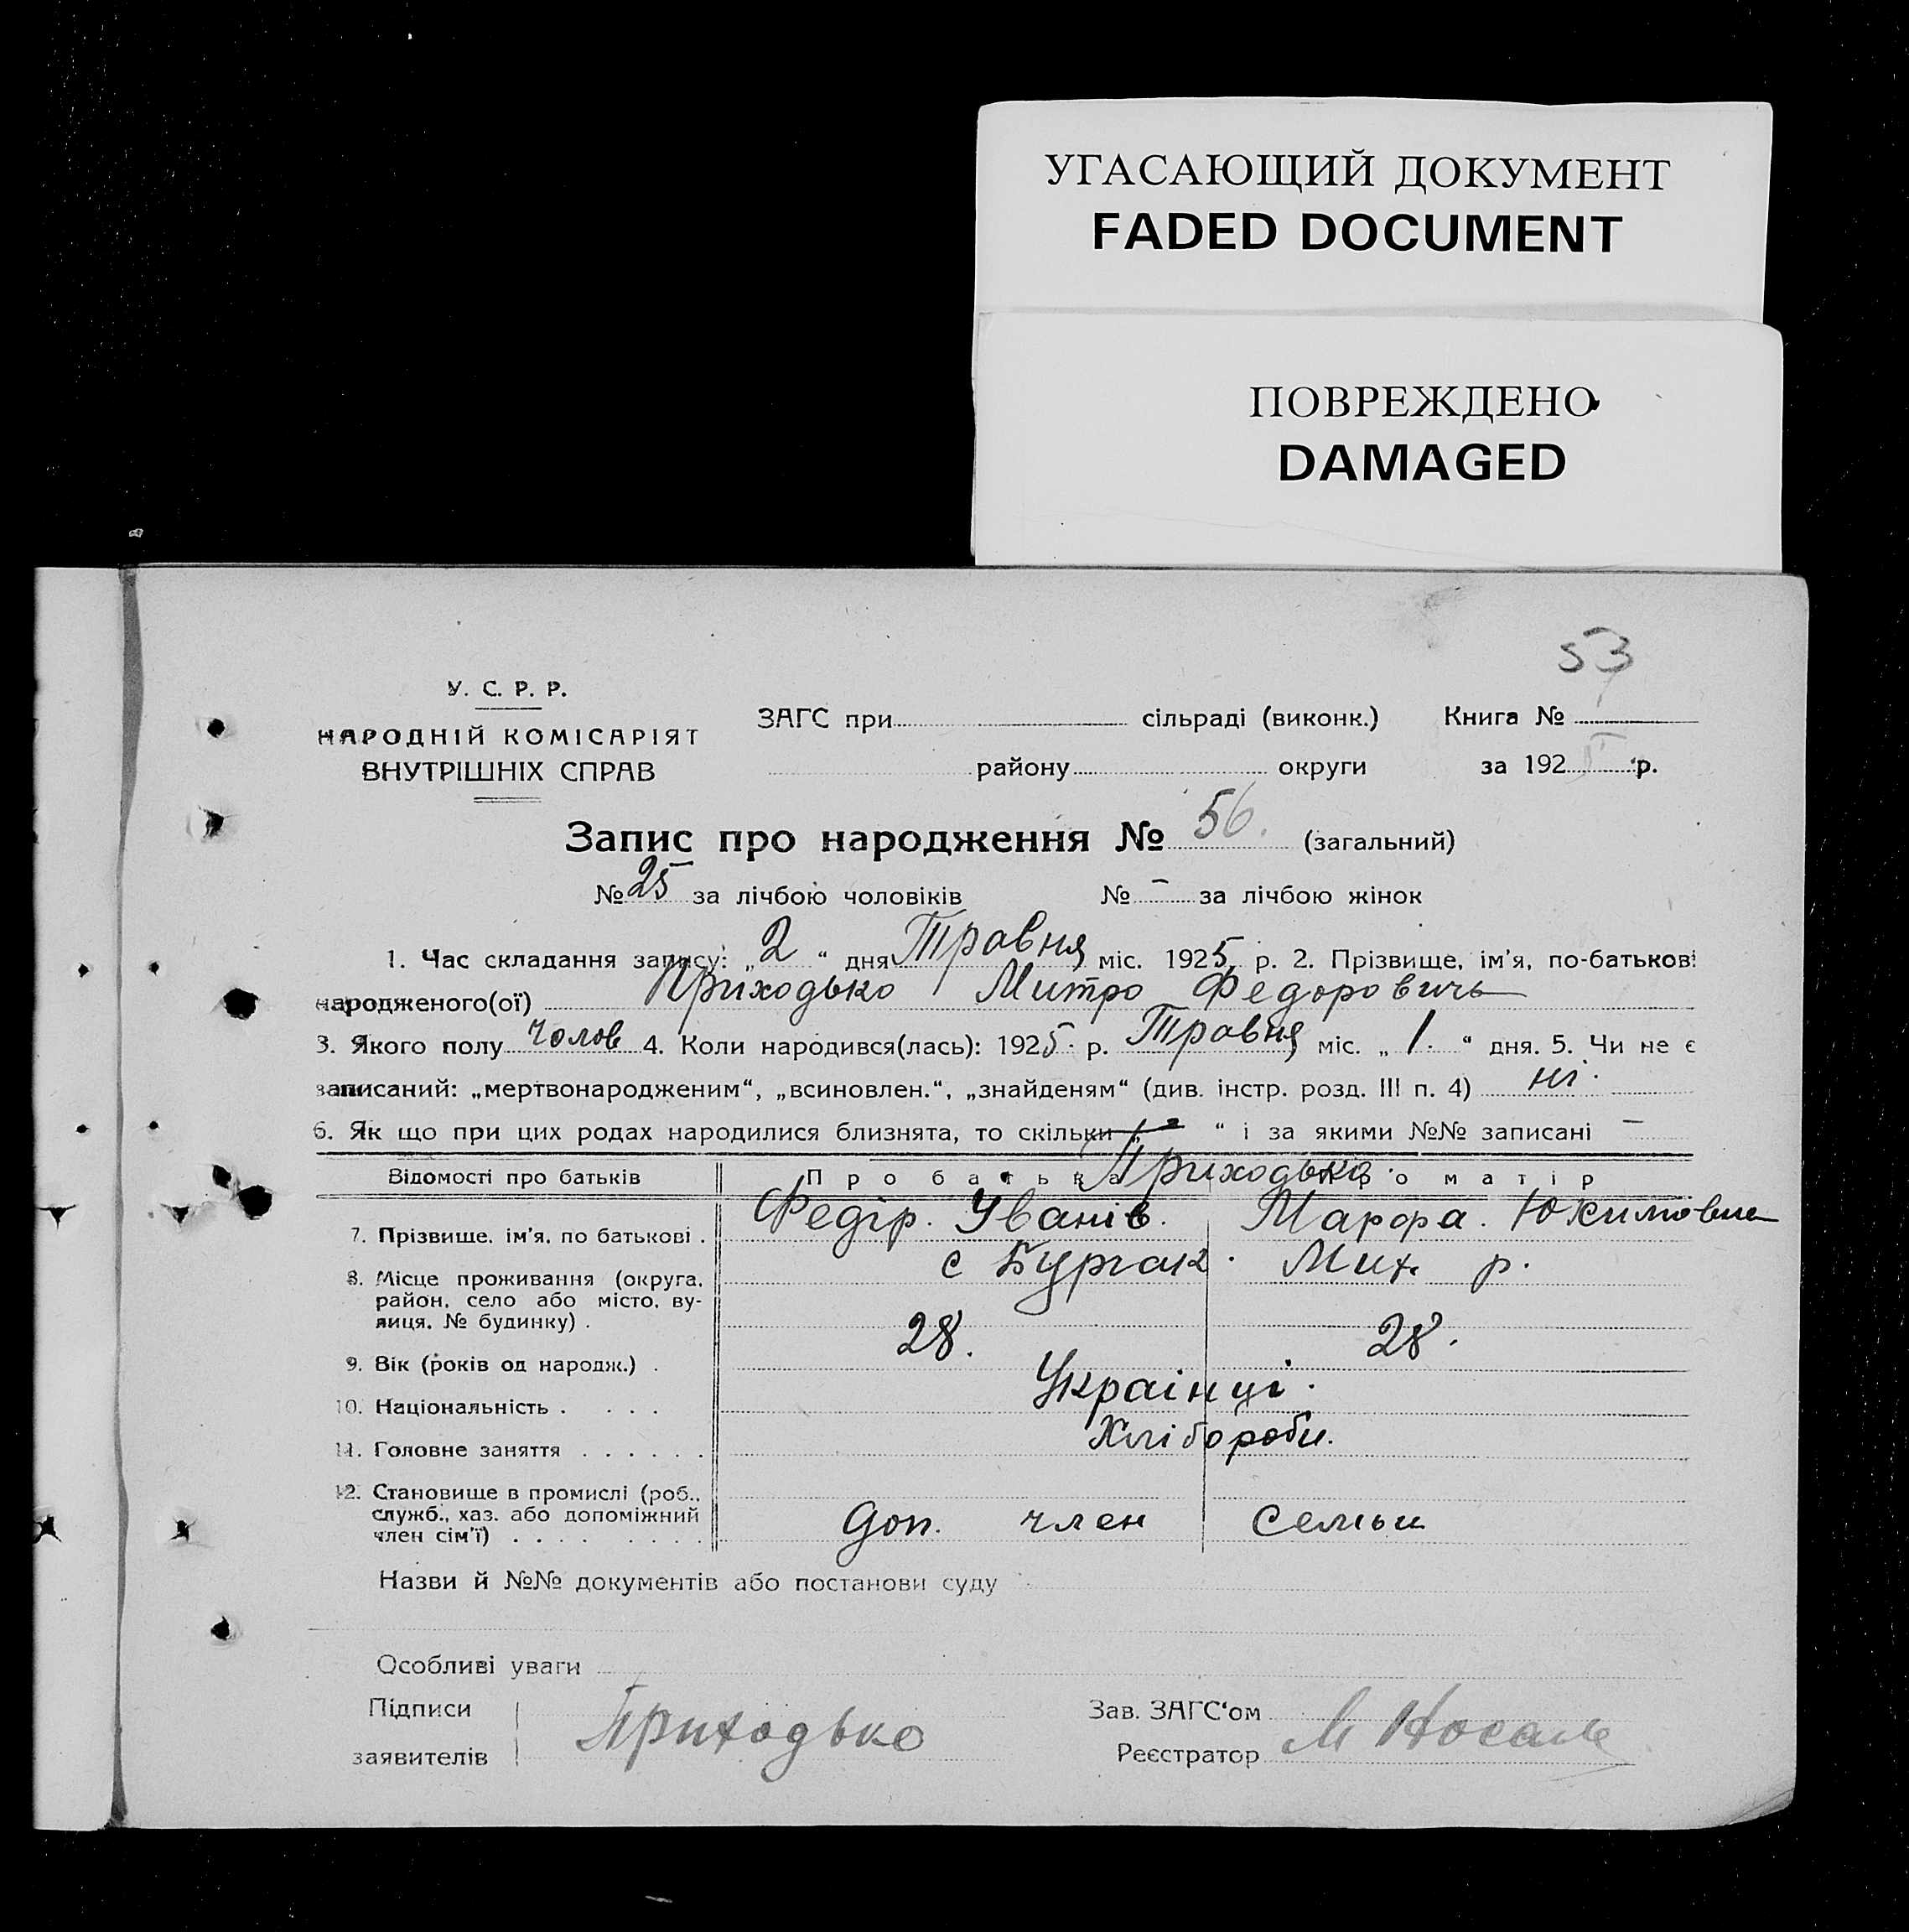 УГАСАЮЩИЙ ДОКУМЕНТ
FADED DOCUMENT
ПОВРЕЖДЕНО
DAMAGED
53
У. С. Р. Р.
НАРОДНІЙ КОМІСАРІЯТ
ВНУТРІШНІХ СПРАВ
ЗАГС при сільраді (виконк.) Книга №
району округи за 192 р.
Запис про народження № 56. (загальний)
№ 25 за лічбою чоловіків № – за лічбою жінок
1. Час складання запису: „ 2 “ дня Травня міс. 1925 р. 2. Прізвище, ім'я, по-батькові
народженого(ої) Приходько Митро Федоровичь
3. Якого полу чолов 4. Коли народився(лась): 1925 р. Травня міс. „ 1. “ дня. 5. Чи не є
записаний: „мертвонародженим“, „всиновлен.“, „знайденям“ (див. інстр. розд. III п. 4) ні.
6. Як що при цих родах народилися близнята, то скільки „ “ і за якими №№ записані –
Відомості про батьків Про батька Про матір
Приходько.
7. Прізвище, ім'я, по батькові . Федір. Уванів. Марфа. Юхимовна
8. Місце проживання (округа, с Мих. р.
район, село або місто, ву-
лиця, № будинку) .
9. Вік (років од народж.) . 28. 28.
10. Національність . . . . Українці.
11. Головне заняття . . . . . . Хлібороби.
12. Становище в промислі (роб.,
служб., хаз. або допоміжний
член сім'ї) . . . . . . . . Доп. член семьи
Назви й №№ документів або постанови суду
Особливі уваги
Підписи Зав. ЗАГС'ом
заявителів Приходько Реєстратор М Носаль